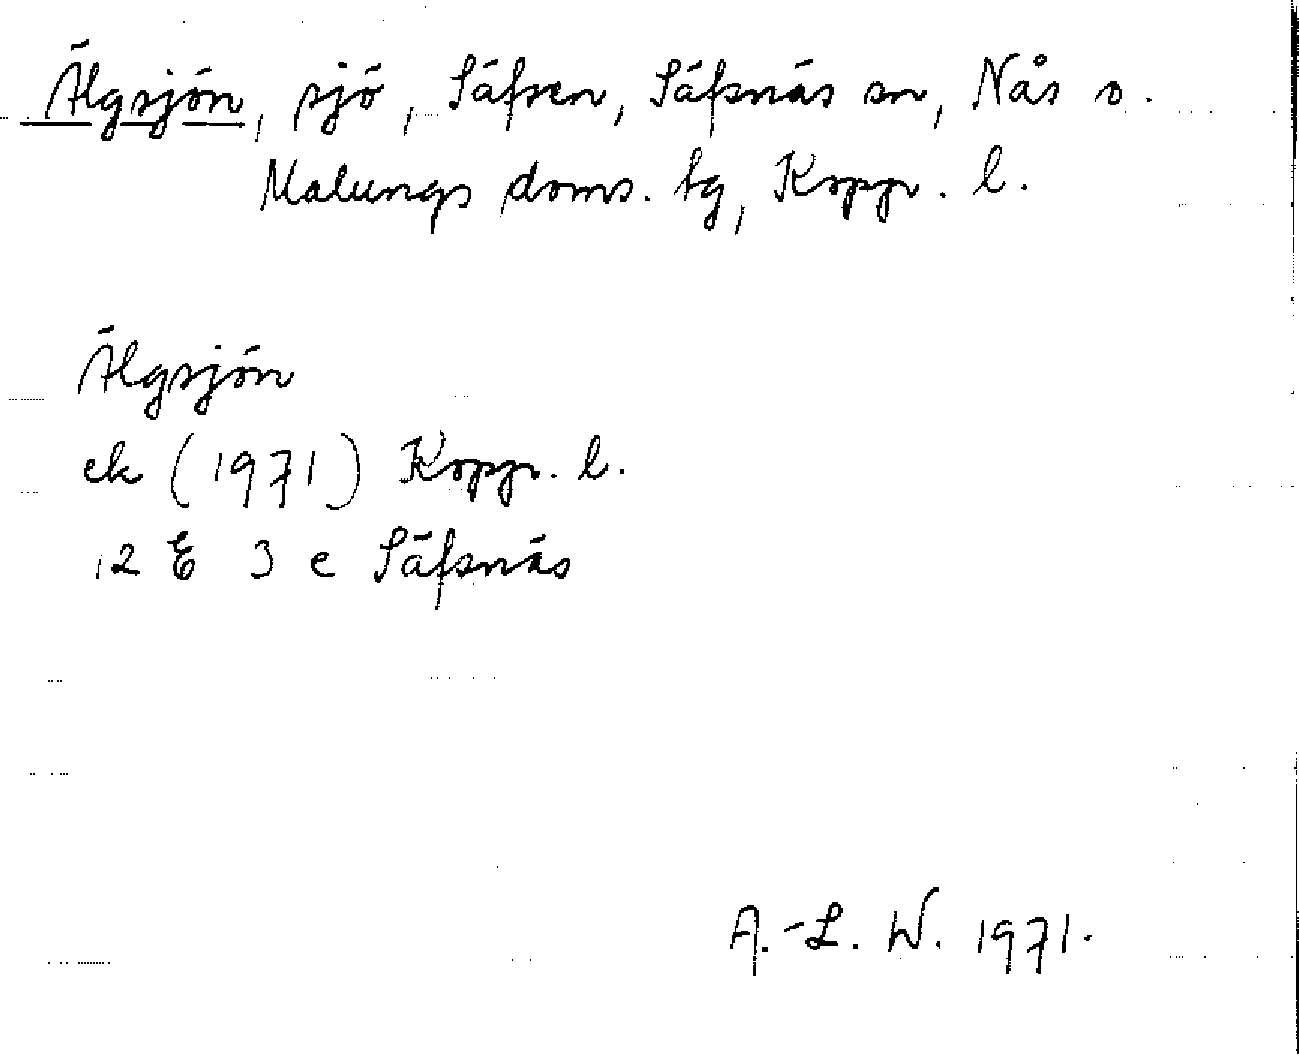 Älgsjön, sjö, Säfsen, Säfsnäs sn, Nås o.
Malungs doms. tg, Kopp. l.
Älgsjön
ek (1971) Kopp. l.
12 E 3 e Säfsnäs
A.-L. W. 1971.